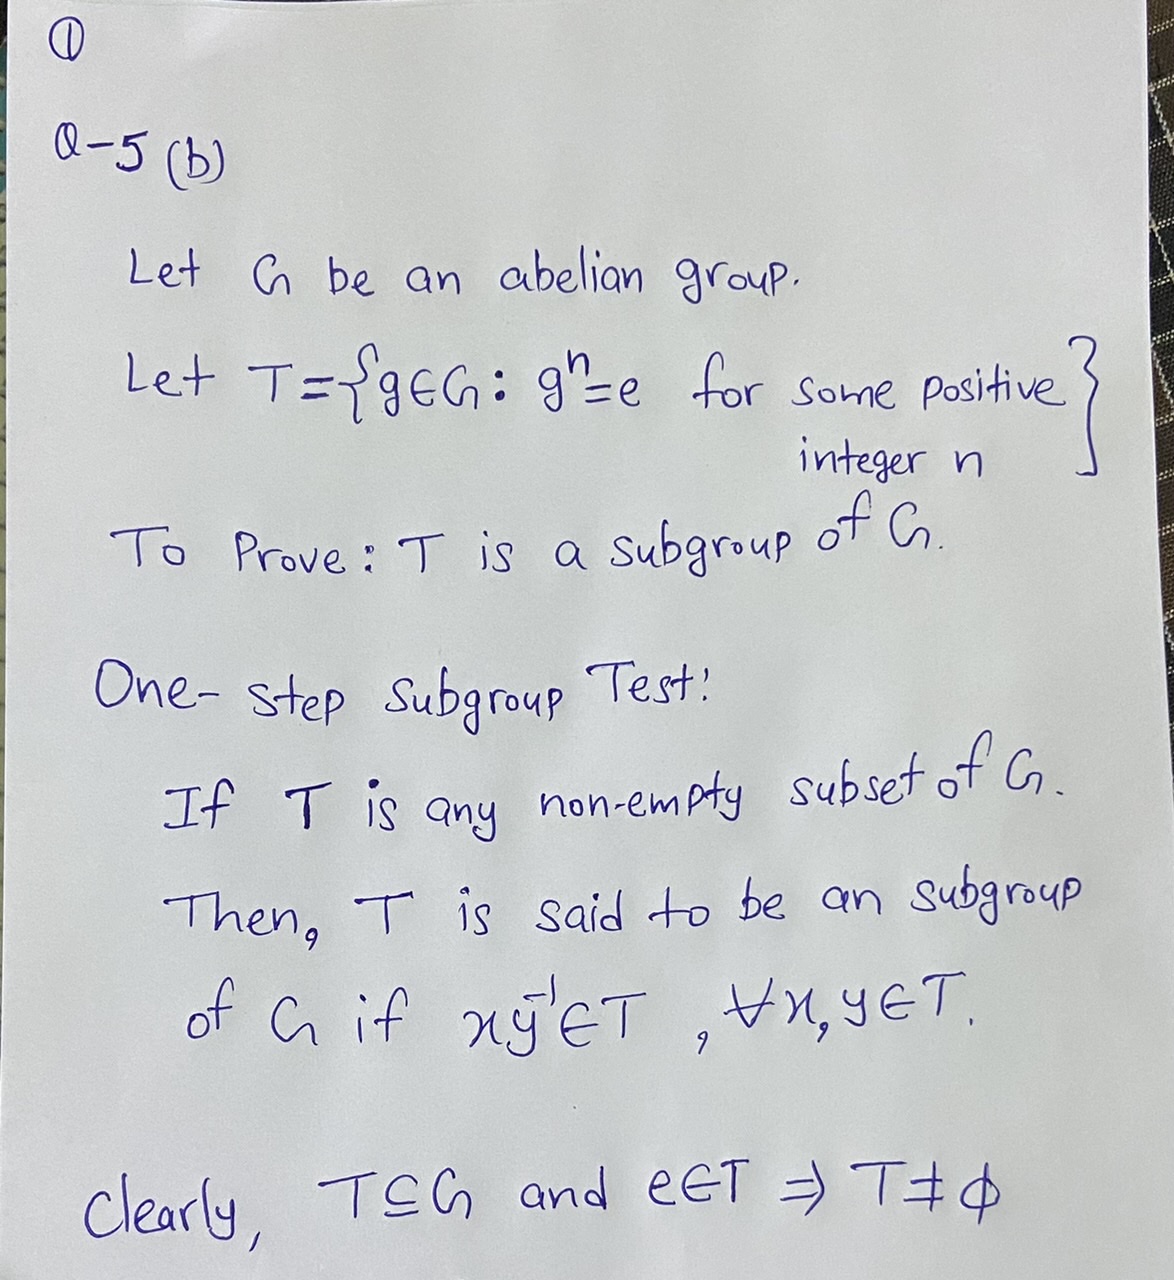 ①
Q-5 (b)
Let G be an abelian group.
Let T={g∈G: gⁿ=e for some positive
integer n}
To Prove: T is a subgroup of G.
One-step subgroup Test:
If T is any non-empty subset of G.
Then, T is said to be an subgroup
of G if xy⁻¹∈T , ∀x, y∈T.
Clearly, T⊆G and e∈T ⇒ T≠ϕ